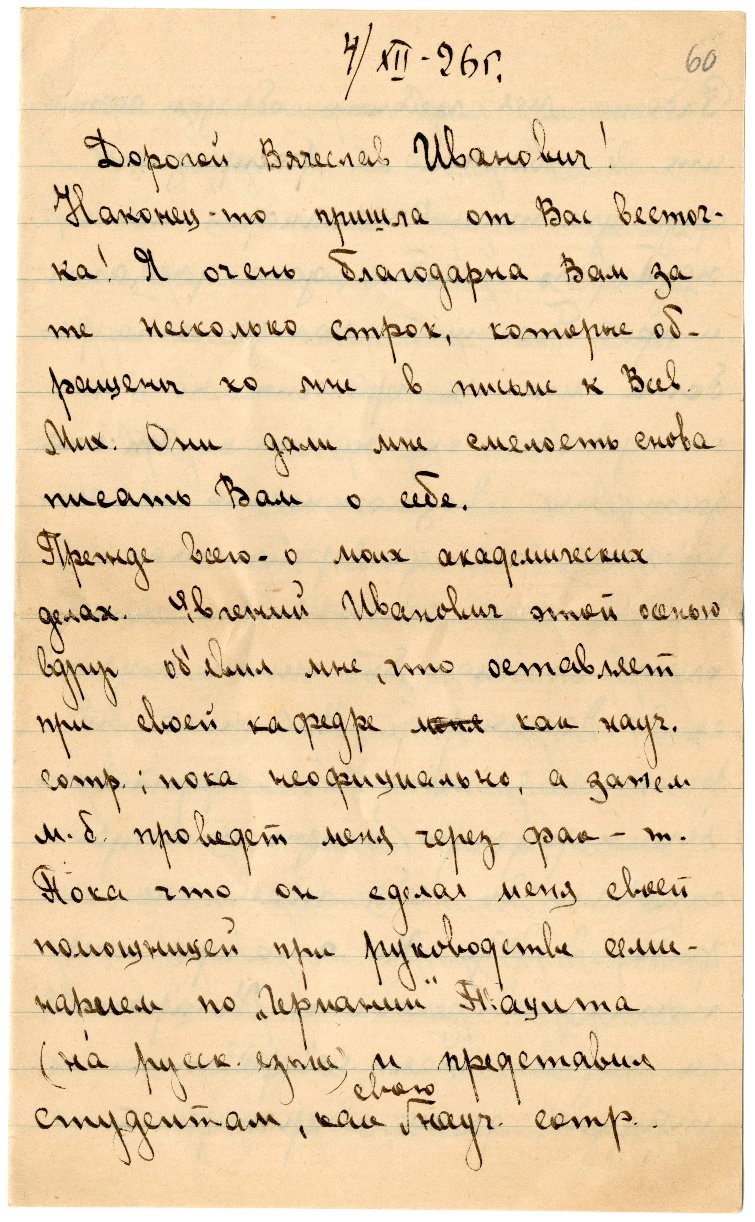 4/XII-26 г.
60
Дорогой Вячеслав Иванович!
Наконец-то пришла от Вас весточ-
ка! Я очень благодарна Вам за
те несколько строк, которые об-
ращены ко мне в письме к Всев.
Мих. Они дали мне смелость снова
писать Вам о себе.
Прежде всего - о моих академических
делах. Евгений Иванович этой осенью
вдруг об'явил мне, что оставляет
при своей кафедре меня как науч.
сотр.; пока неофициально, а затем
м.б. проведет меня через фак-т.
Пока что он сделал меня своей
помощницей при руководстве семи-
нарием по „Германии" Тацита
(на русск. языке) и представил
студентам, как свою науч. сотр.